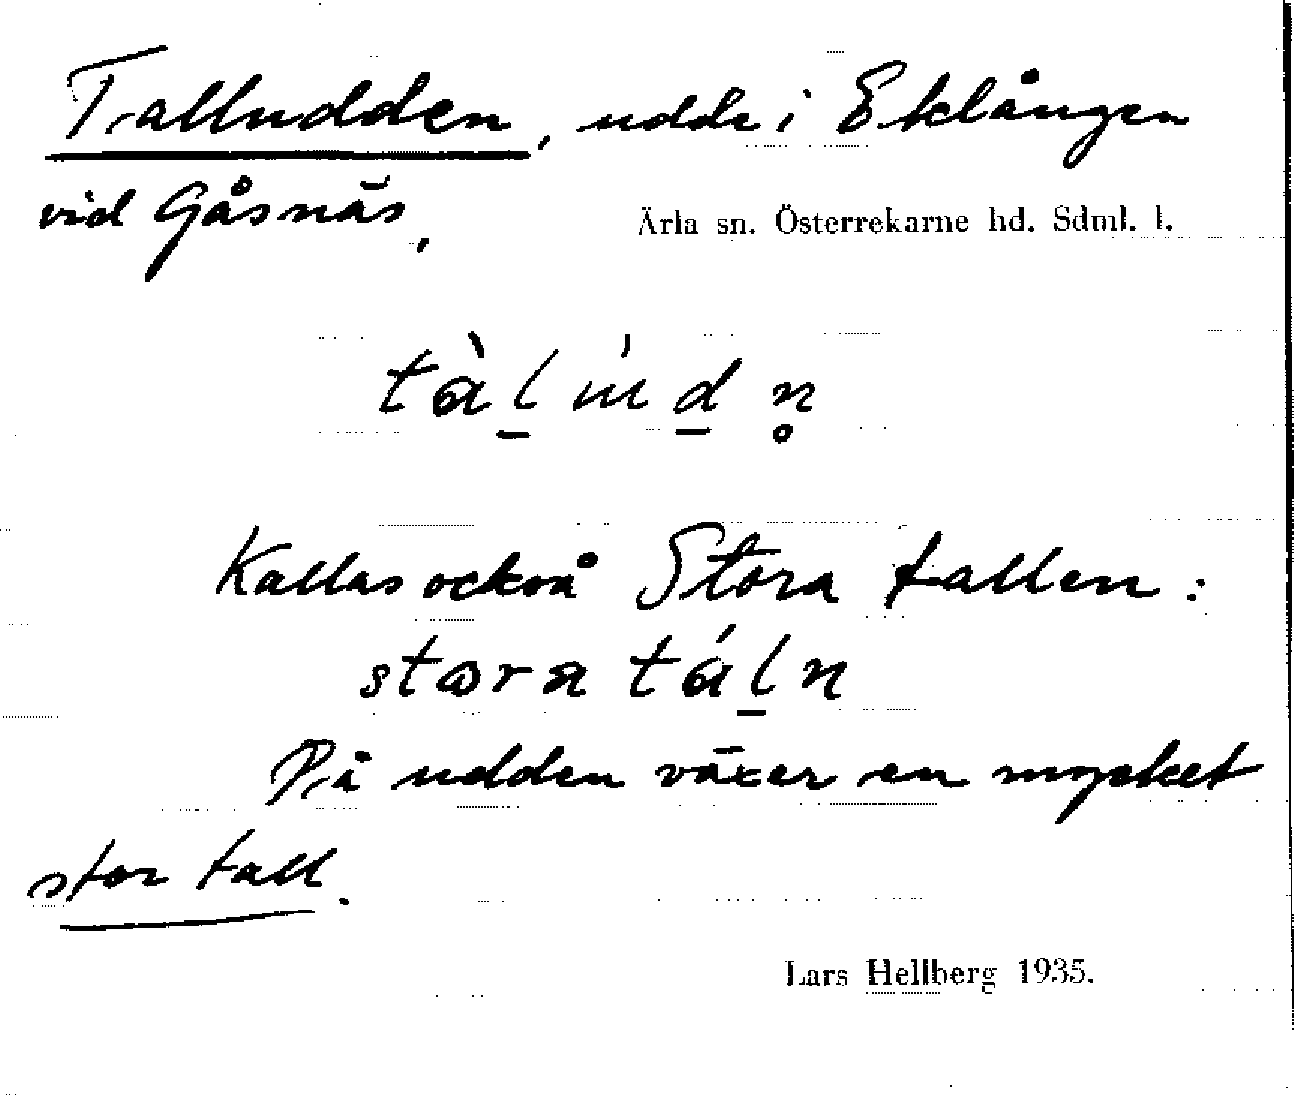 Talludden, udde i Eklången
vid Gåsnäs,
Ärla sn. Österrekarne hd. Sdml. l.
tàl̠ úd̠n̥
Kallas också Stora tallen:
stora tál̠n
På udden växer en mycket
stor tall.
Lars Hellberg 1935.